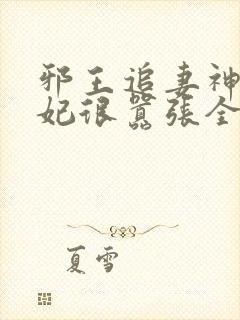 邪王追妻神
妃很嚣張全
夏雪